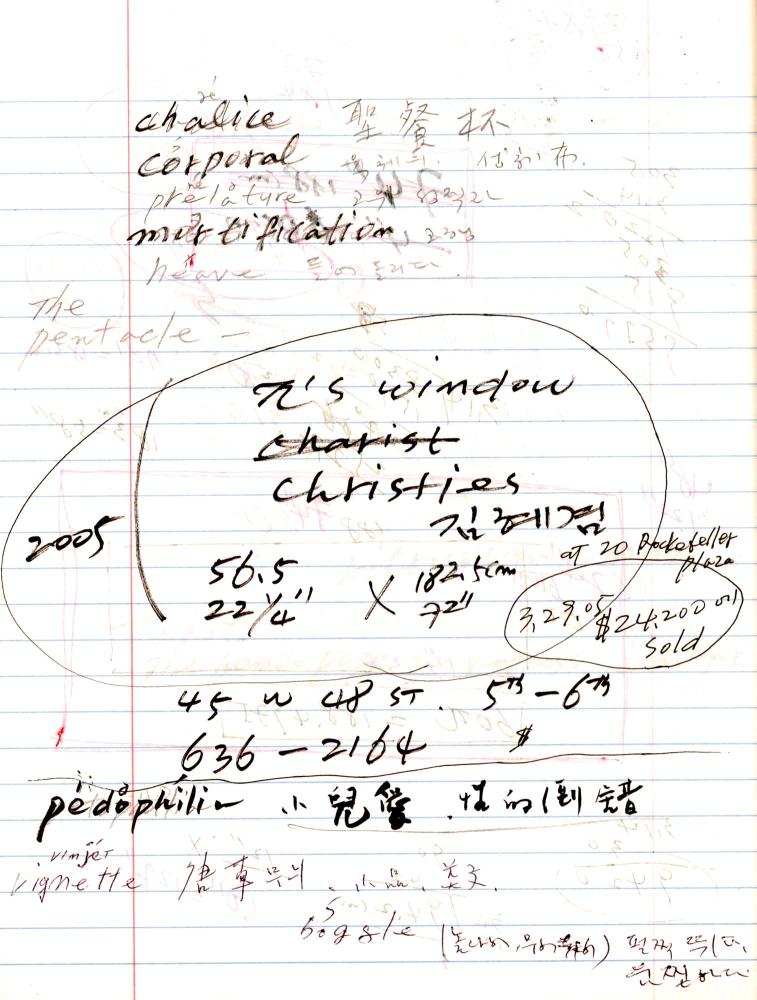 chalice 聖餐杯
corporal 육체의. 성체布.
prelature 고위 성직자
mortification 고행
heave 들어 올리다.
The
pentacle —
π's window
charist
christies
김혜겸
2005
56.5 182.5cm
22 1/4" X 72"
at 20 Rockefeller
plaza
3.29.05 $24,200 에
sold
45 W 48 ST. 5TH - 6TH
636 - 2164 $
pedophilia 小兒愛 性的倒錯
vignette 唐草무늬, 小品, 美文.
boggle 펄쩍 뛰다,